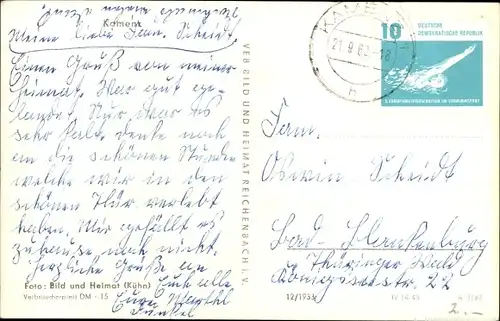 Kamenz
Meine liebe Fam. Scheidt.
Einen Gruß von meiner
Heimat. War gut ge-
landet. Nur war es
sehr kalt. denke noch
an die schönen Stunden
welche wir in den
schönen Thür verlebt
haben. Mir gefällt es
zuhause noch nicht.
Herzliche Grüße an
Euch alle
Eure
Foto: Bild und Heimat (Kühn)
Verbraucherpreis DM -.15
VEB BILD UND HEIMAT REICHENBACH I. V.
KAMENZ
21.9.62-18
h
10
DEUTSCHE
DEMOKRATISCHE REPUBLIK
Fam.
Oswin Scheidt
Bad-Blankenburg
Thüringer Wald
Königseestr. 22
12/1933
2.-